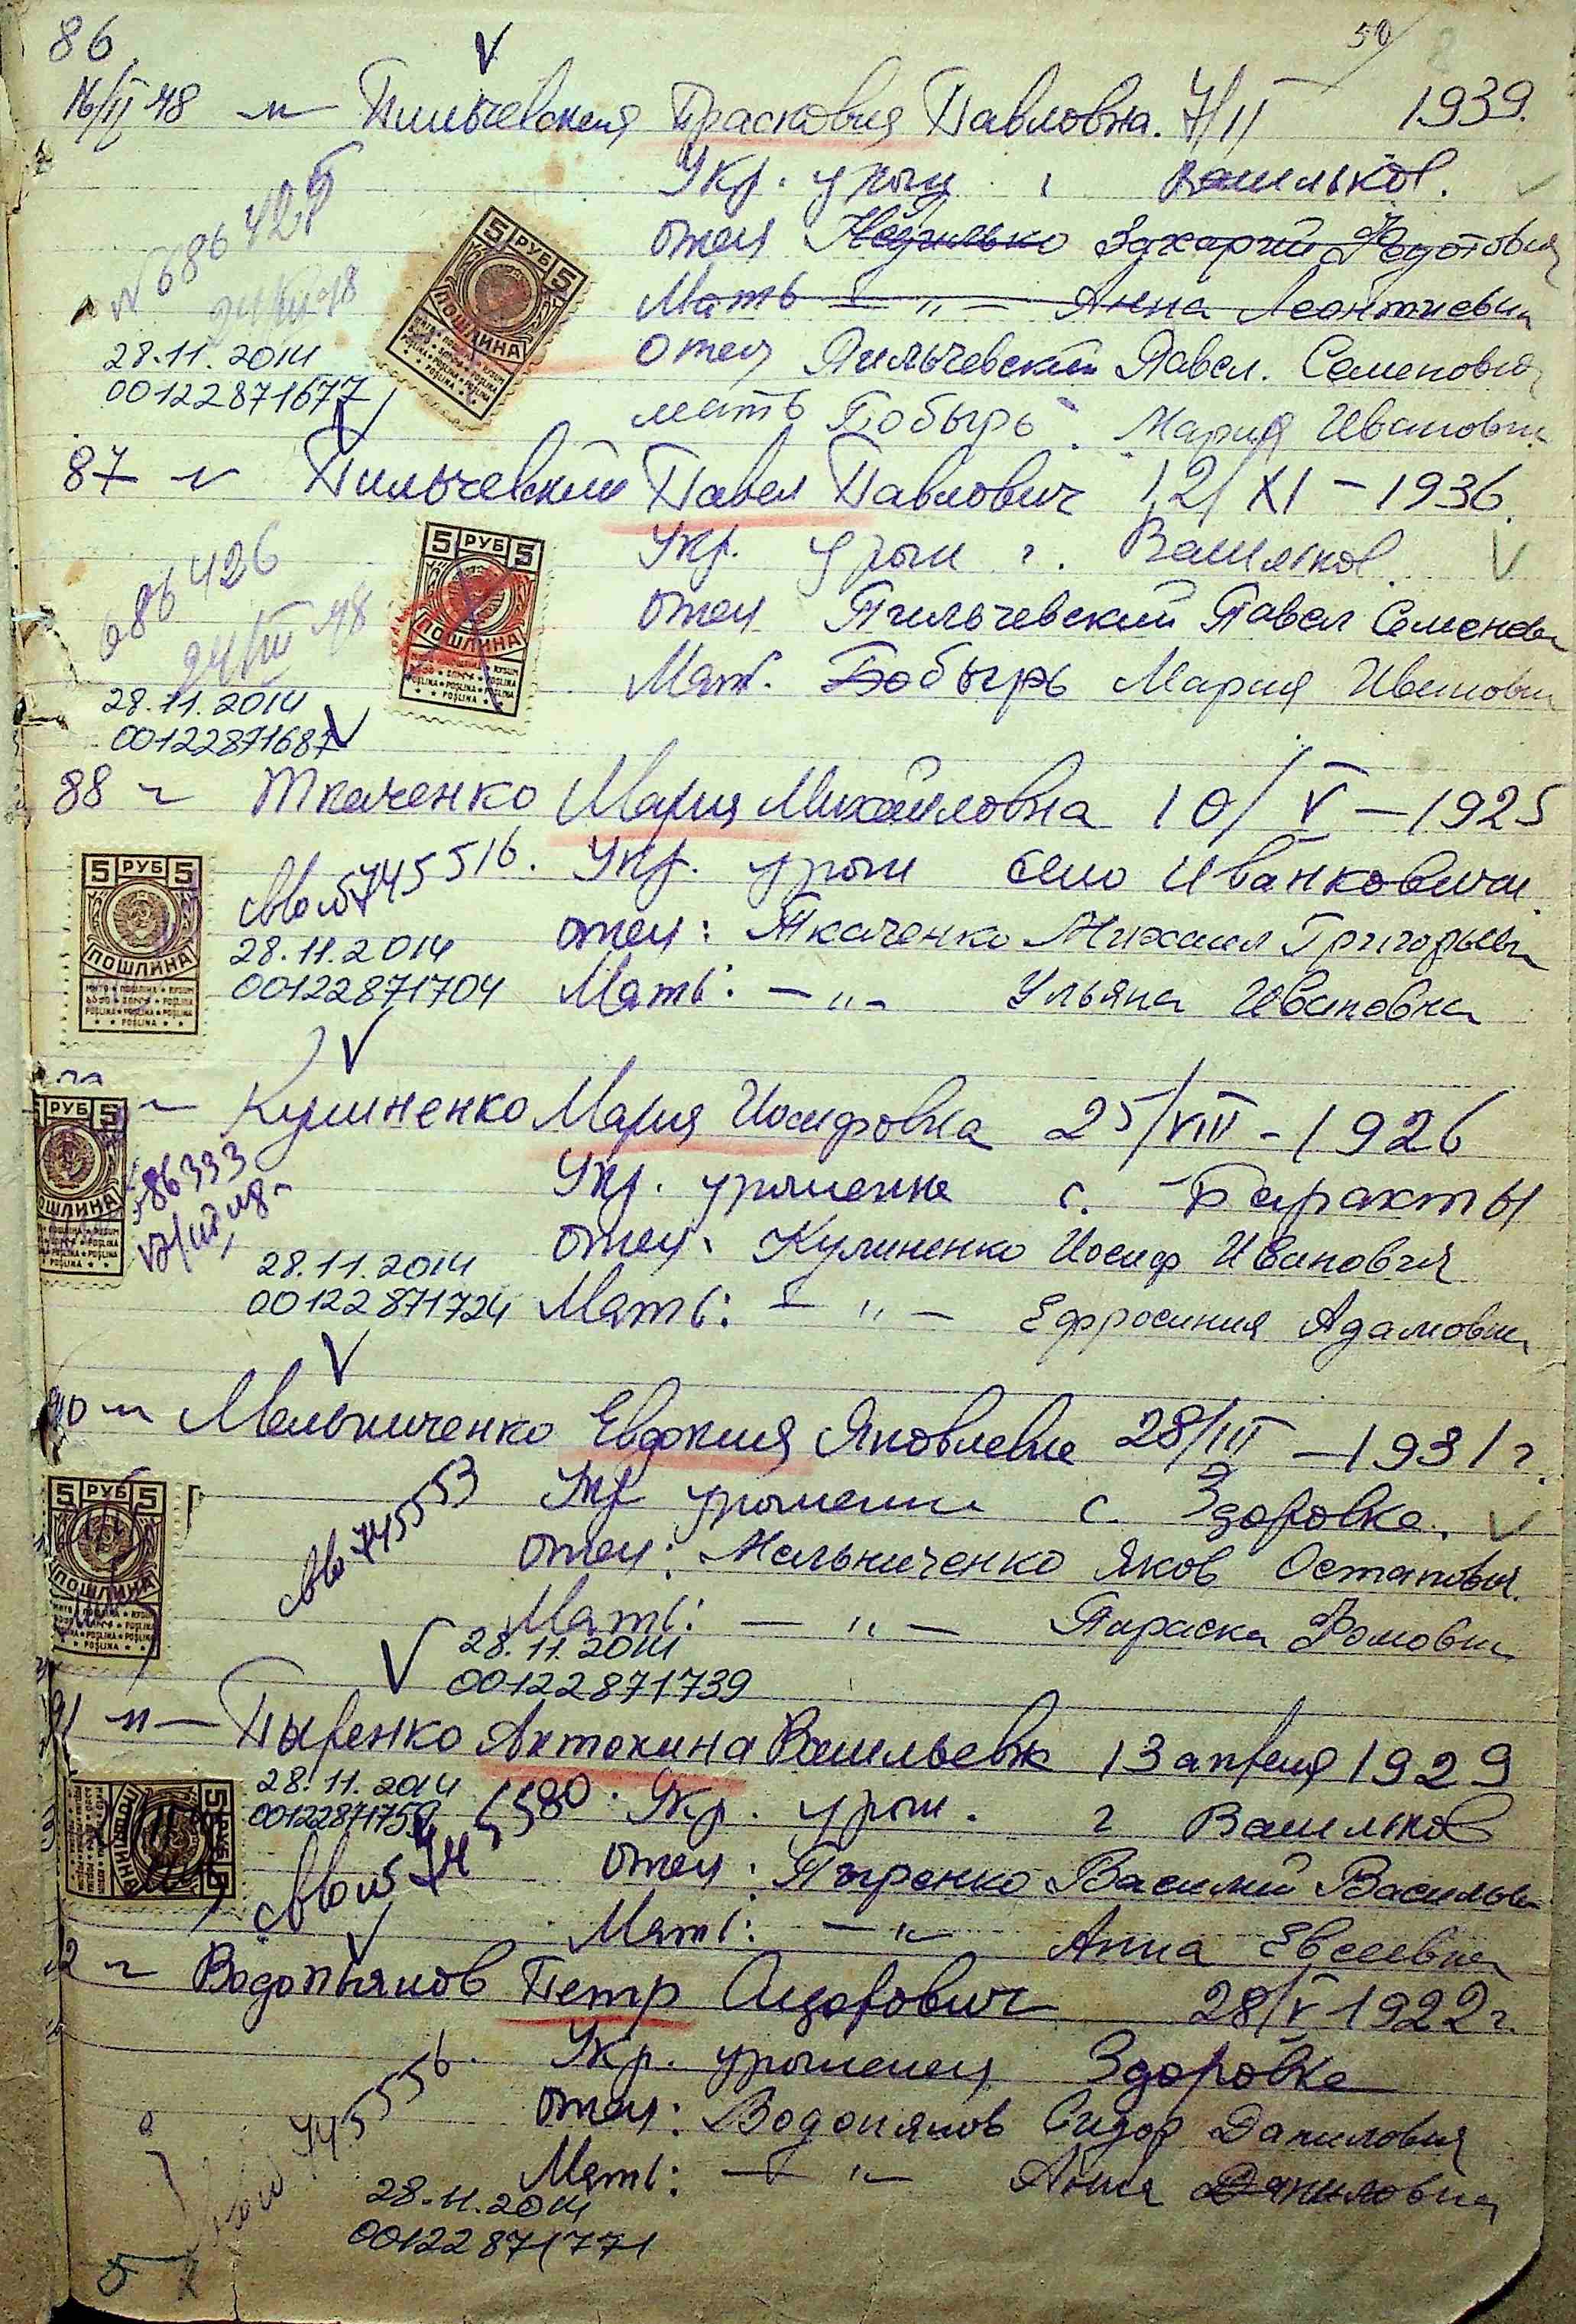 86
50
16/II 48 Пильчевская Прасковия Павловна. 7/II 1939.
Укр. урож. г Васильков.
отец Захарий Федотович
Мать — " — Анна Леонтиевна
№ 686425
24/III 48
28.11.2014
00122871677
Отец Пильчевский Павел. Семенович
мать Бобырь. Мария Ивановна
5 РУБ 5
ПОШЛИНА
87 Пильчевский Павел Павлович 12/XI - 1936.
Укр. урож г. Васильков.
686426
24/III 48
отец Пильчевский Павел Семенов
Мат. Бобырь Мария Ивановн
28.11.2014
00122871687
5 РУБ 5
ПОШЛИНА
88 Ткаченко Мария Михайловна 10/V - 1925
745516. Укр. урож село Иванковичи.
отец: Ткаченко Михаил Григорьев
28.11.2014
00122871704 Мать: — " — Ульяна Ивановна
5 РУБ 5
ПОШЛИНА
Кулиненко Мария Иосифовна 25/VIII - 1926
Укр. уроженка с. Барахты
86333
отец: Кулиненко Иосиф Иванович
28.11.2014
00122871724 Мать: — " — Ефросиния Адамовн
РУБ 5
90 Мельниченко Евдокия Яковлевна 28/III - 1931 г.
745553 Укр уроженка с. Здоровка.
отец: Мельниченко Яков Остапович.
Мать: — " — Параска Фомовна
28.11.2014
00122871739
5 РУБ 5
ПОШЛИНА
91 Пыренко Антонина Васильевн 13 апреля 1929
28.11.2014
00122871759
745580. Укр. урож. г Васильков
отец: Пыренко Василий Васильев
Мать: — " Анна Евсеевна
РУБ 5
ПОШЛИНА
2 Водопьянов Петр Сидорович 28/V 1922 г.
745556. Укр. уроженец Здоровка
отец: Водопянов Сидор Данилович
Мать: — " — Анна Даниловна
28.11.2014
00122871771